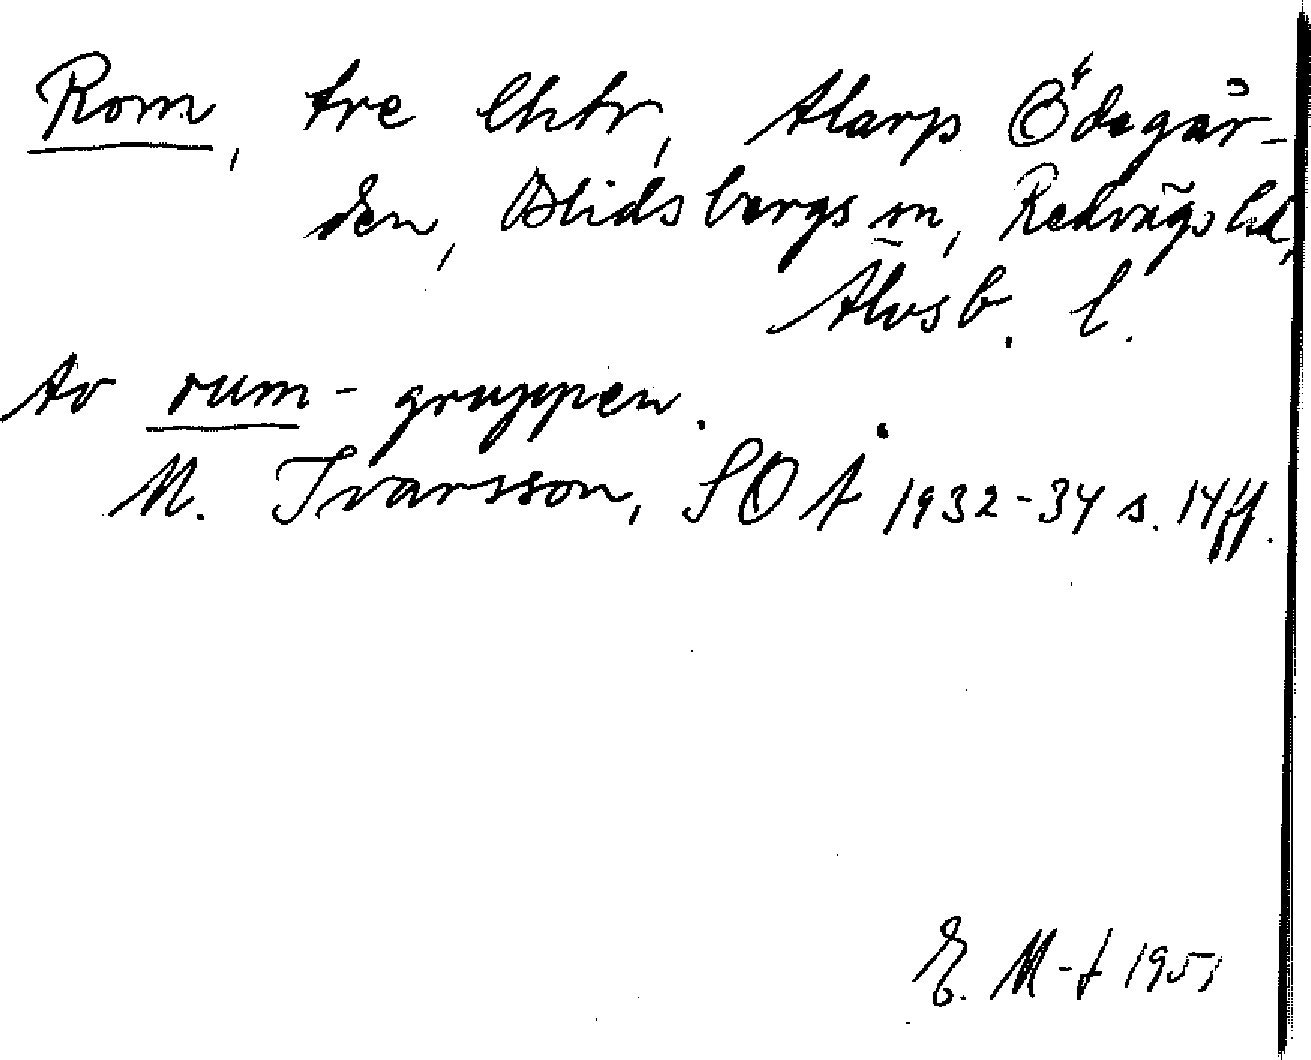 Rom, tre lhtr, Alarp Ödegår-
den, Blidsbergs sn, Redvägs hd,
Älvsb. l.
Av rum-gruppen.
M. Ivarsson, SOÅ 1932-34 s. 14 ff.
E. M-t 1951